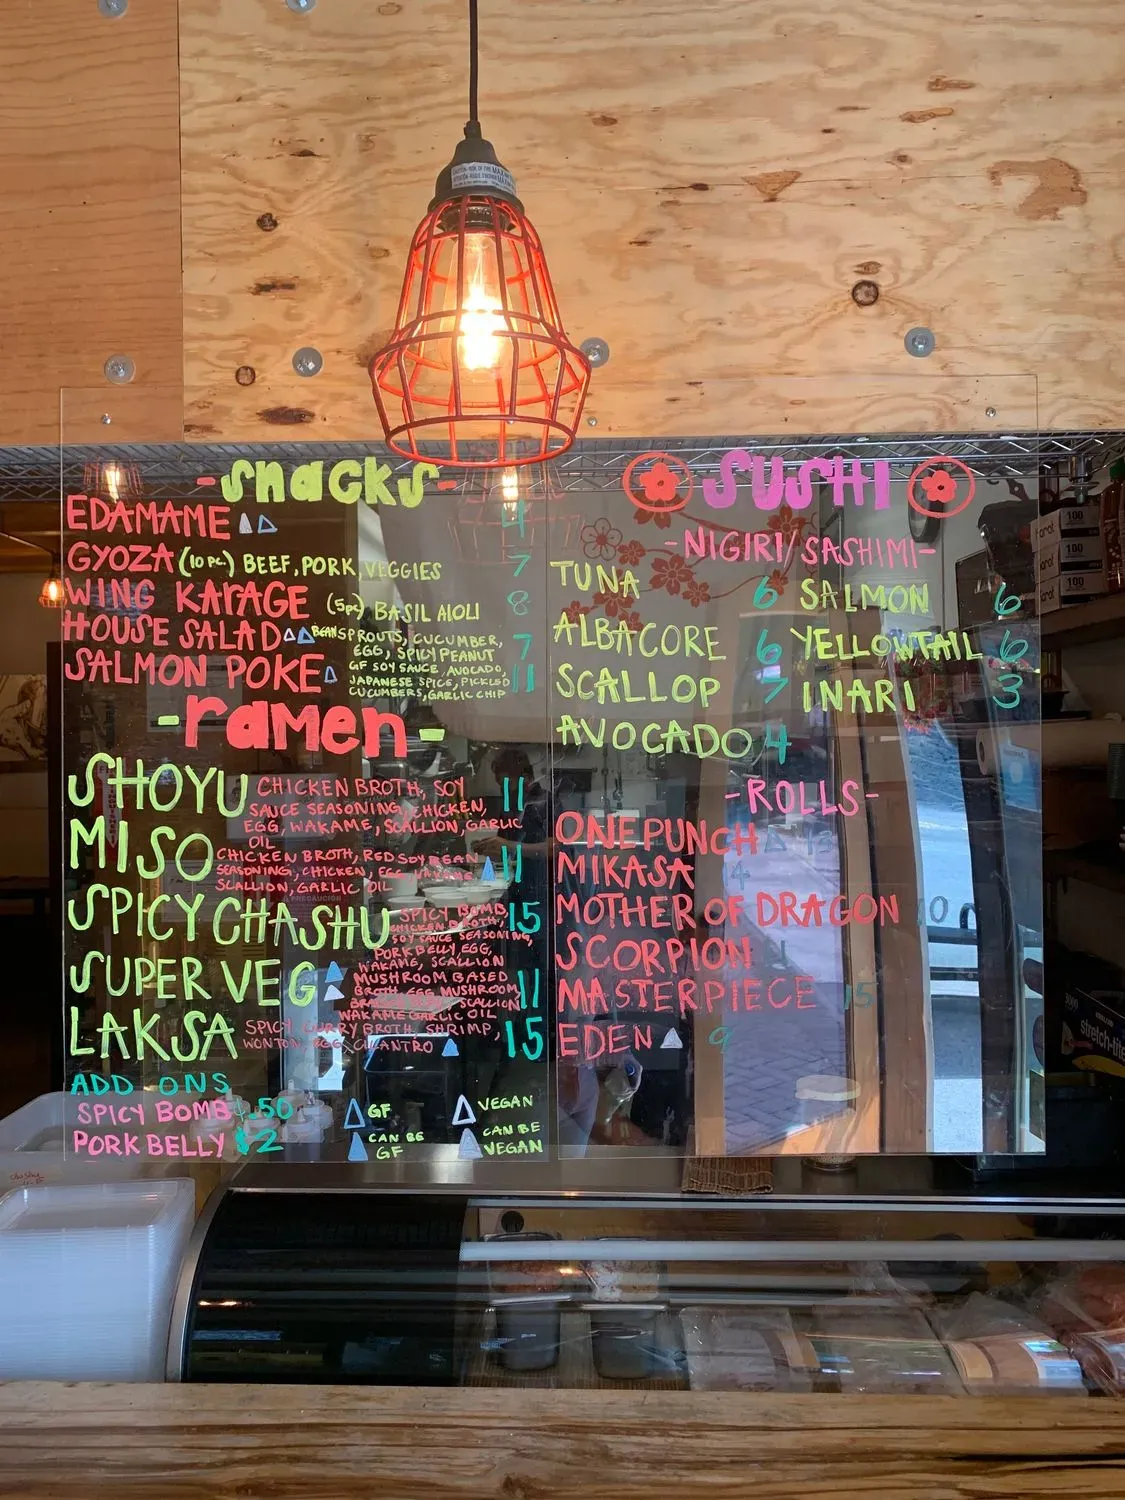 -snacks-
EDAMAME 4
GYOZA (10 pc.) BEEF, PORK VEGGIES 7
WING KARAGE (5pc) BASIL AIOLI 8
HOUSE SALAD BEANSPROUTS, CUCUMBER, 7
EGG, SPICY PEANUT
SALMON POKE GF SOY SAUCE, AVOCADO, 11
JAPANESE SPICE, PICKLED
CUCUMBERS, GARLIC CHIP
-ramen-
SHOYU CHICKEN BROTH, SOY 11
SAUCE SEASONING, CHICKEN,
EGG, WAKAME, SCALLION, GARLIC
OIL
MISO CHICKEN BROTH, RED SOY BEAN 11
SEASONING, CHICKEN, EGG, WAKAME,
SCALLION, GARLIC OIL
SPICY CHASHU SPICY BOMB, 15
CHICKEN BROTH,
SOY SAUCE SEASONING,
PORK BELLY, EGG,
WAKAME, SCALLION
SUPER VEG MUSHROOM BASED 11
BROTH, EGG, MUSHROOM,
SCALLION
WAKAME GARLIC OIL
LAKSA SPICY CURRY BROTH, SHRIMP, 15
WONTON, EGG, CILANTRO
ADD ONS
SPICY BOMB .50
PORK BELLY $2
GF
VEGAN
CAN BE
GF
CAN BE
VEGAN
SUSHI
-NIGIRI/SASHIMI-
TUNA 6 SALMON 6
ALBACORE 6 YELLOWTAIL 6
SCALLOP 7 INARI 3
AVOCADO 4
-ROLLS-
ONEPUNCH
MIKASA
MOTHER OF DRAGON
SCORPION
MASTERPIECE 15
EDEN 9
100
100
100
stretch-tite